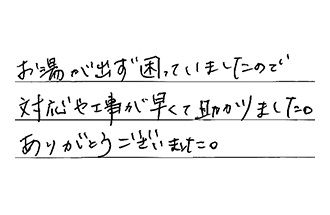 お湯が出ず困っていましたので
対応や工事が早くて助かりました。
ありがとうございました。